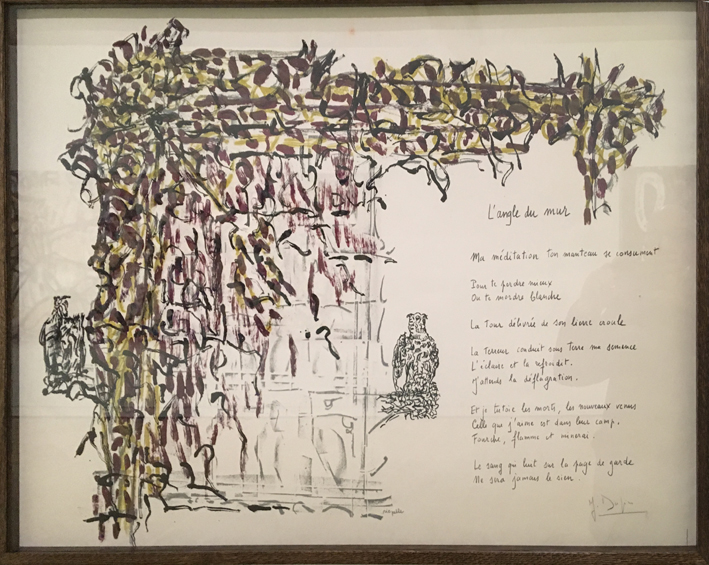 L'angle du mur
Ma méditation ton manteau se consument
Pour te perdre mieux
Ou te mordre blanche
La tour délivrée de son lierre croule
La terreur conduit sous terre ma semence
L'éclaire et la refroidit.
J'attends la déflagration.
Et je tutoie les morts, les nouveaux venus
Celle que j'aime est dans leur camp.
Fourche, flamme et minerai.
Le sang qui luit sur la page de garde
Ne sera jamais le sien
J. Dupin
riopelle